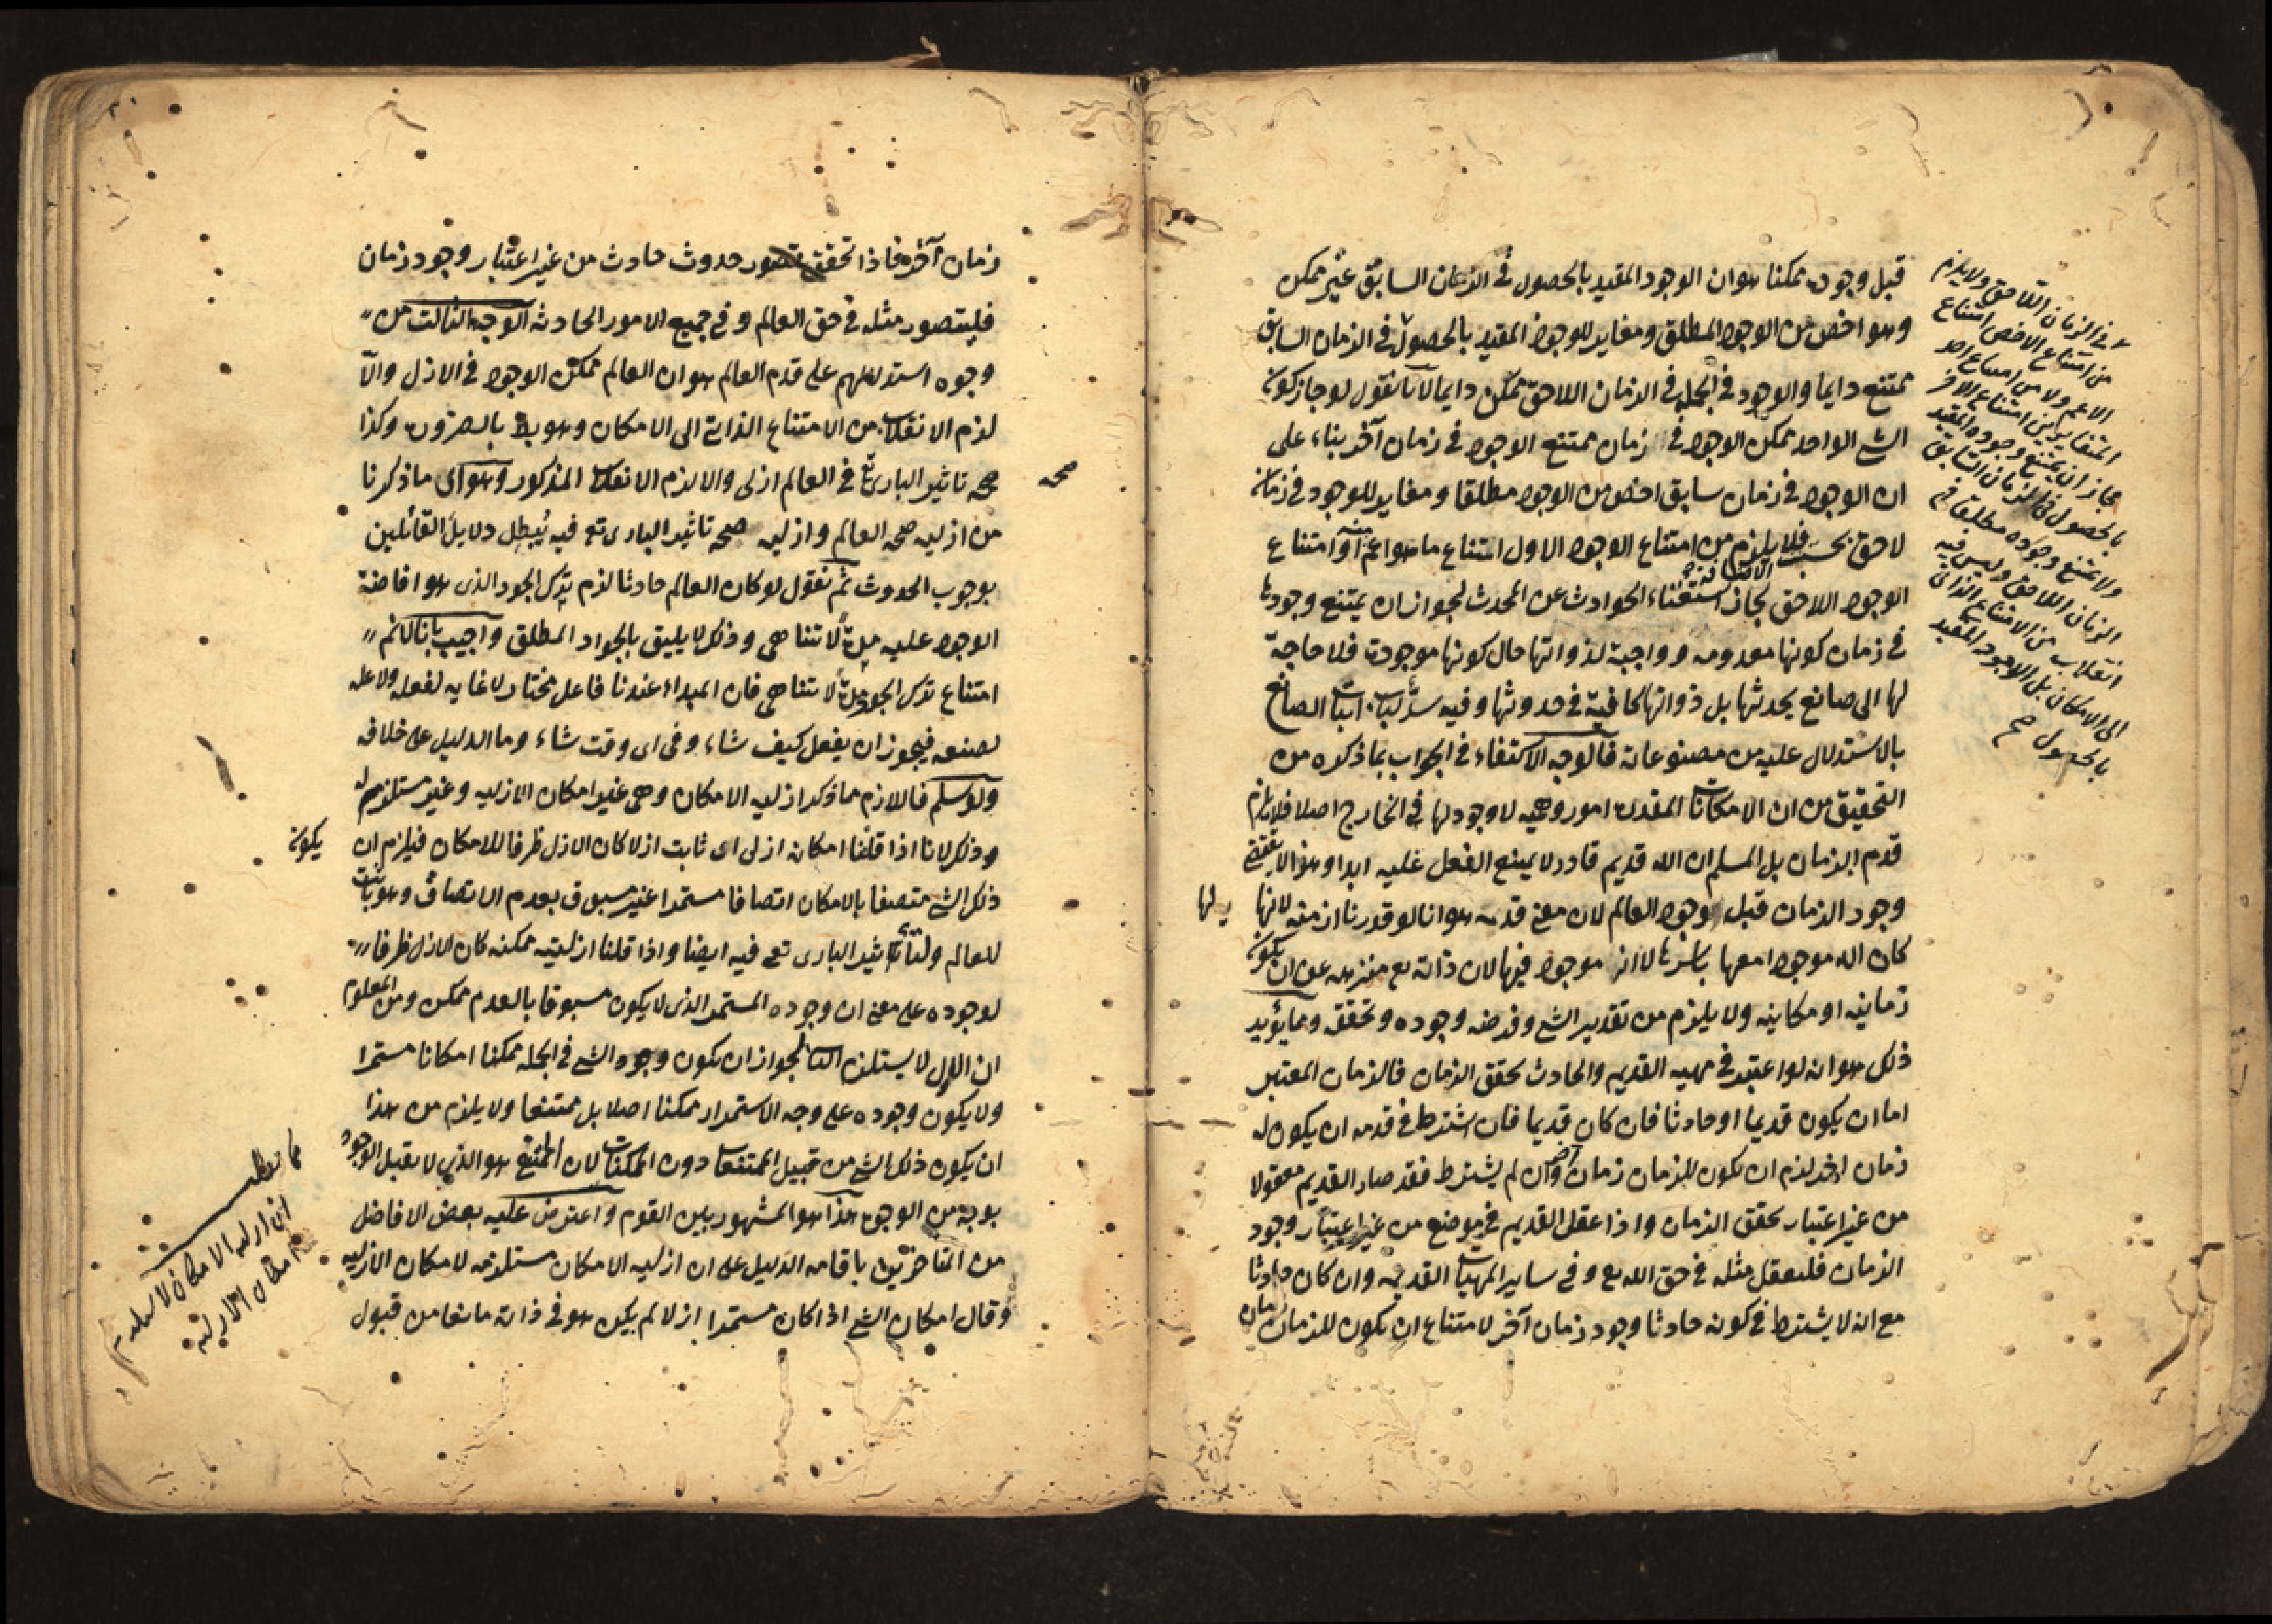 قبل وجوده ممكنا هو ان الوجود المقيد بالحصول في الزمان السابق غير ممكن
وهو اخص من الوجود المطلق ومغاير للوجود المقيد بالحصول في الزمان السابق
ممتنع دايما والوجود في الجملة في الزمان اللاحق ممكن دايما لانا نقول لو جاز كون
الشئ الواحد ممكن الوجود في زمان ممتنع الوجود في زمان آخر بناء على
ان الوجود في زمان سابق اخص من الوجود مطلقا ومغاير للوجود في زمان
لاحق بحسب فلا يلزم من امتناع الوجود الاول امتناع ما هو اعم منه او امتناع
الوجود اللاحق لجاز استغناء الحوادث عن المحدث لجواز ان يمتنع وجودها
في زمان كونها معدومه وواجبة لذواتها حال كونها موجودة فلا حاجة
لها الى صانع يحدثها بل ذواتها كافية في حدوثها وفيه سد لباب اثبات الصانع
بالاستدلال عليه من مصنوعاته فالوجه الاكتفاء في الجواب بما ذكره من
التحقيق من ان الامكانات المقدرة امور وهميه لا وجود لها في الخارج اصلا فلا يلزم
قدم الزمان بل المسلم ان الله قديم قادر لا يمنع الفعل عليه ابدا وهذا لا يقتضي
وجود الزمان قبل وجود العالم لان معنى قدمه هو انا لو قدرنا ازمنه لا نهاية لها
كان الله موجودا معها باسرها لا انه موجود فيها لان ذاته تع منزهه عن ان يكون
زمانيه او مكانيه ولا يلزم من تقدير الشئ وفرضه وجوده وتحققه ومما يؤيد
ذلك هو انه لو اعتبر في مهيه القديم والحادث تحقق الزمان فالزمان المعتبر
اما ان يكون قديما او حادثا فان كان قديما فان اشترط في قدمه ان يكون له
زمان اخر لزم ان يكون للزمان زمان آخر وان لم يشترط فقد صار القديم معقولا
من غير اعتبار تحقق الزمان واذا عقل القديم في موضع من غير اعتبار وجود
الزمان فليعقل مثله في حق الله تع وفي ساير المهيات القديمه وان كان حادثا
مع انه لا يشترط في كونه حادثا وجود زمان آخر لامتناع ان يكون للزمان زمان
في الزمان اللاحق ولا يلزم
من امتناع الاخص امتناع
الاعم ولا من امتناع احد
المتغايرين امتناع الاخر
فجاز ان يمتنع وجوده المقيد
بالحصول في الزمان السابق
ولا يمتنع وجوده مطلقا في
الزمان اللاحق وليس فيه
انقلاب من الامتناع الذاتي
الى الامكان بل الوجود المقيد
بالحصول صح
زمان آخر فاذا تحقق حدوث حادث من غير اعتبار وجود زمان
فليتصور مثله في حق العالم وفي جميع الامور الحادثه الوجه الثالث من
وجوه استدلالهم على قدم العالم هو ان العالم ممكن الوجود في الازل والا
لزم الانقلاب من الامتناع الذاتي الى الامكان وهو بط بالضروره وكذا
صحه تاثير الباري تع في العالم ازلي والا لزم الانقلاب المذكور وهو اي ما ذكرنا
صحه
من ازليه صحه العالم وازليه صحه تاثير الباري تع فيه يبطل دلايل القائلين
بوجوب الحدوث ثم نقول لو كان العالم حادثا لزم ترك الجود الذي هو افاضة
الوجود عليه مدة لا تتناهى وذلك لا يليق بالجواد المطلق واجيب بانا لا نم
امتناع ترك الجود مدة لا تتناهى فان المبداء عندنا فاعل مختار لا غايه لفعله ولا عله
لصنعه فيجوز ان يفعل كيف شاء وفي اي وقت شاء وما الدليل على خلافه
ولو سلم فاللازم مما ذكر ازليه الامكان وهي غير امكان الازليه وغير مستلزم له
وذلك لانا اذا قلنا امكانه ازلي اي ثابت ازلا كان الازل ظرفا للامكان فيلزم ان يكون
ذلك الشئ متصفا بالامكان اتصافا مستمرا غير مسبوق بعدم الاتصاف وهو ثابت
للعالم ولتاثير الباري تع فيه ايضا واذا قلنا ازليته ممكنه كان الازل ظرفا
لوجوده على معنى ان وجوده المستمر الذي لا يكون مسبوقا بالعدم ممكن ومن المعلوم
ان الاول لا يستلزم الثاني لجواز ان يكون وجود الشئ في الجملة ممكنا امكانا مستمرا
ولا يكون وجوده على وجه الاستمرار ممكنا اصلا بل ممتنعا ولا يلزم من هذا
ان يكون ذلك الشئ من قبيل الممتنعات دون الممكنات لان الممتنع هو الذي لا يقبل الوجود
بوجه من الوجوه هذا هو المشهور بين القوم واعترض عليه بعض الافاضل
من المتاخرين باقامه الدليل على ان ازليه الامكان مستلزمه لامكان الازليه
وقال امكان الشئ اذا كان مستمرا ازلا لم يكن هو في ذاته مانعا من قبول
ان ازليه الامكان لا يستلزم
امكان الازليه